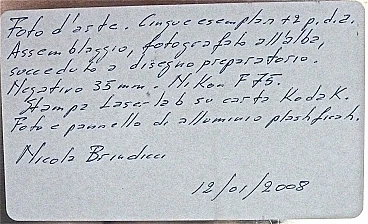 Foto d'arte. Cinque esemplari + 2 p.d.a.
Assemblaggio, fotografato all'alba,
succeduto a disegno preparatorio.
Negativo 35 mm. Nikon F75.
Stampa Laserlab su carta Kodak.
Foto e pannello di alluminio plastificati.
Nicola
12/01/2008